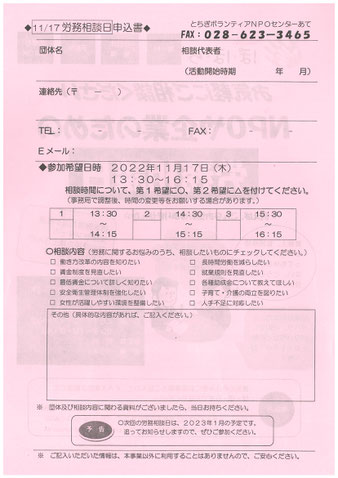 ◆11/17 労務相談日申込書◆
とちぎボランティアNPOセンターあて
FAX:028-623-3465
団体名
相談代表者
(活動開始時期 年 月)
連絡先(〒 － )
TEL: - - FAX: - -
Eメール:
◆参加希望日時 2022年11月17日(木)
13:30～16:15
相談時間について、第1希望に○、第2希望に△を付けてください。
(事務局で調整後、時間の変更等をお願いする場合があります。)
1 13:30～14:15 2 14:30～15:15 3 15:30～16:15
○相談内容(労務に関するお悩みのうち、相談したいものにチェックしてください。)
□ 働き方改革の内容を知りたい □ 長時間労働を減らしたい
□ 賃金制度を見直したい □ 就業規則を見直したい
□ 最低賃金について詳しく知りたい □ 各種助成金について教えてほしい
□ 安全衛生管理体制を強化したい □ 子育て・介護の両立を図りたい
□ 女性が活躍しやすい環境を整備したい □ 人手不足に対応したい
その他(具体的な内容があれば、ご記入ください。)
※ 団体及び相談内容に関わる資料がございましたら、当日お持ちください。
予告
○次回の労務相談日は、2023年1月の予定です。
追ってお知らせしますので、ぜひご参加ください。
※ ご記入いただいた情報は、本事業以外に利用することはありませんので、ご安心ください。